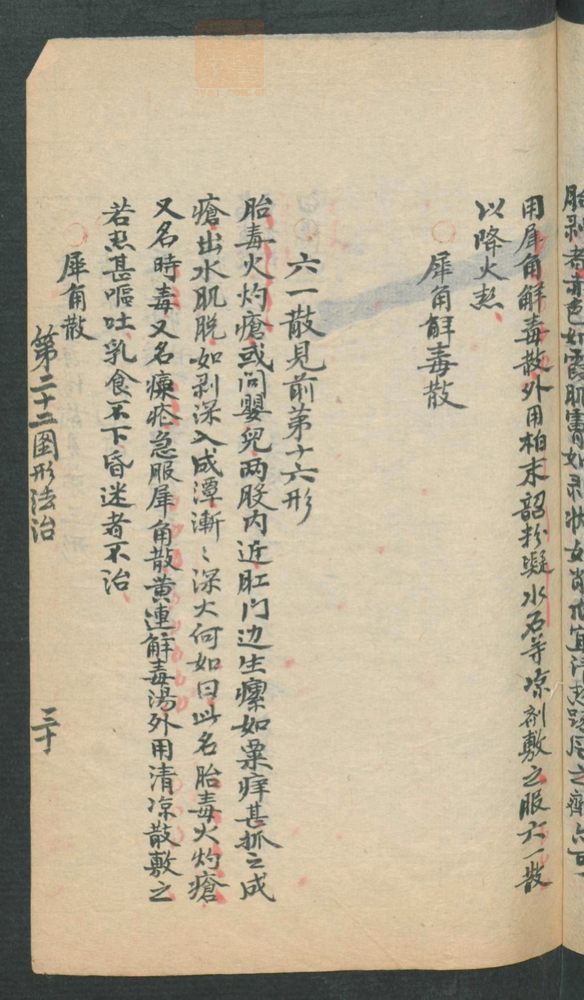 胎剥者赤色如霞肌膚如剥
用犀角解毒散外用柏末韶粉凝水石等凉剤敷之服六一散
以降火热
犀角解毒散
六一散見前第十六形
胎毒火灼瘡或问嬰兒两股内近肛门边生瘰如粟痒甚抓之成
瘡出水肌脱如剥深入成潭漸〻深大何如曰此名胎毒火灼瘡
又名時毒又名癩疮急服犀角散黄連解毒湯外用清凉散敷之
若热甚嘔吐乳食不下昏迷者不治
犀角散
第二十二图形法治
三十